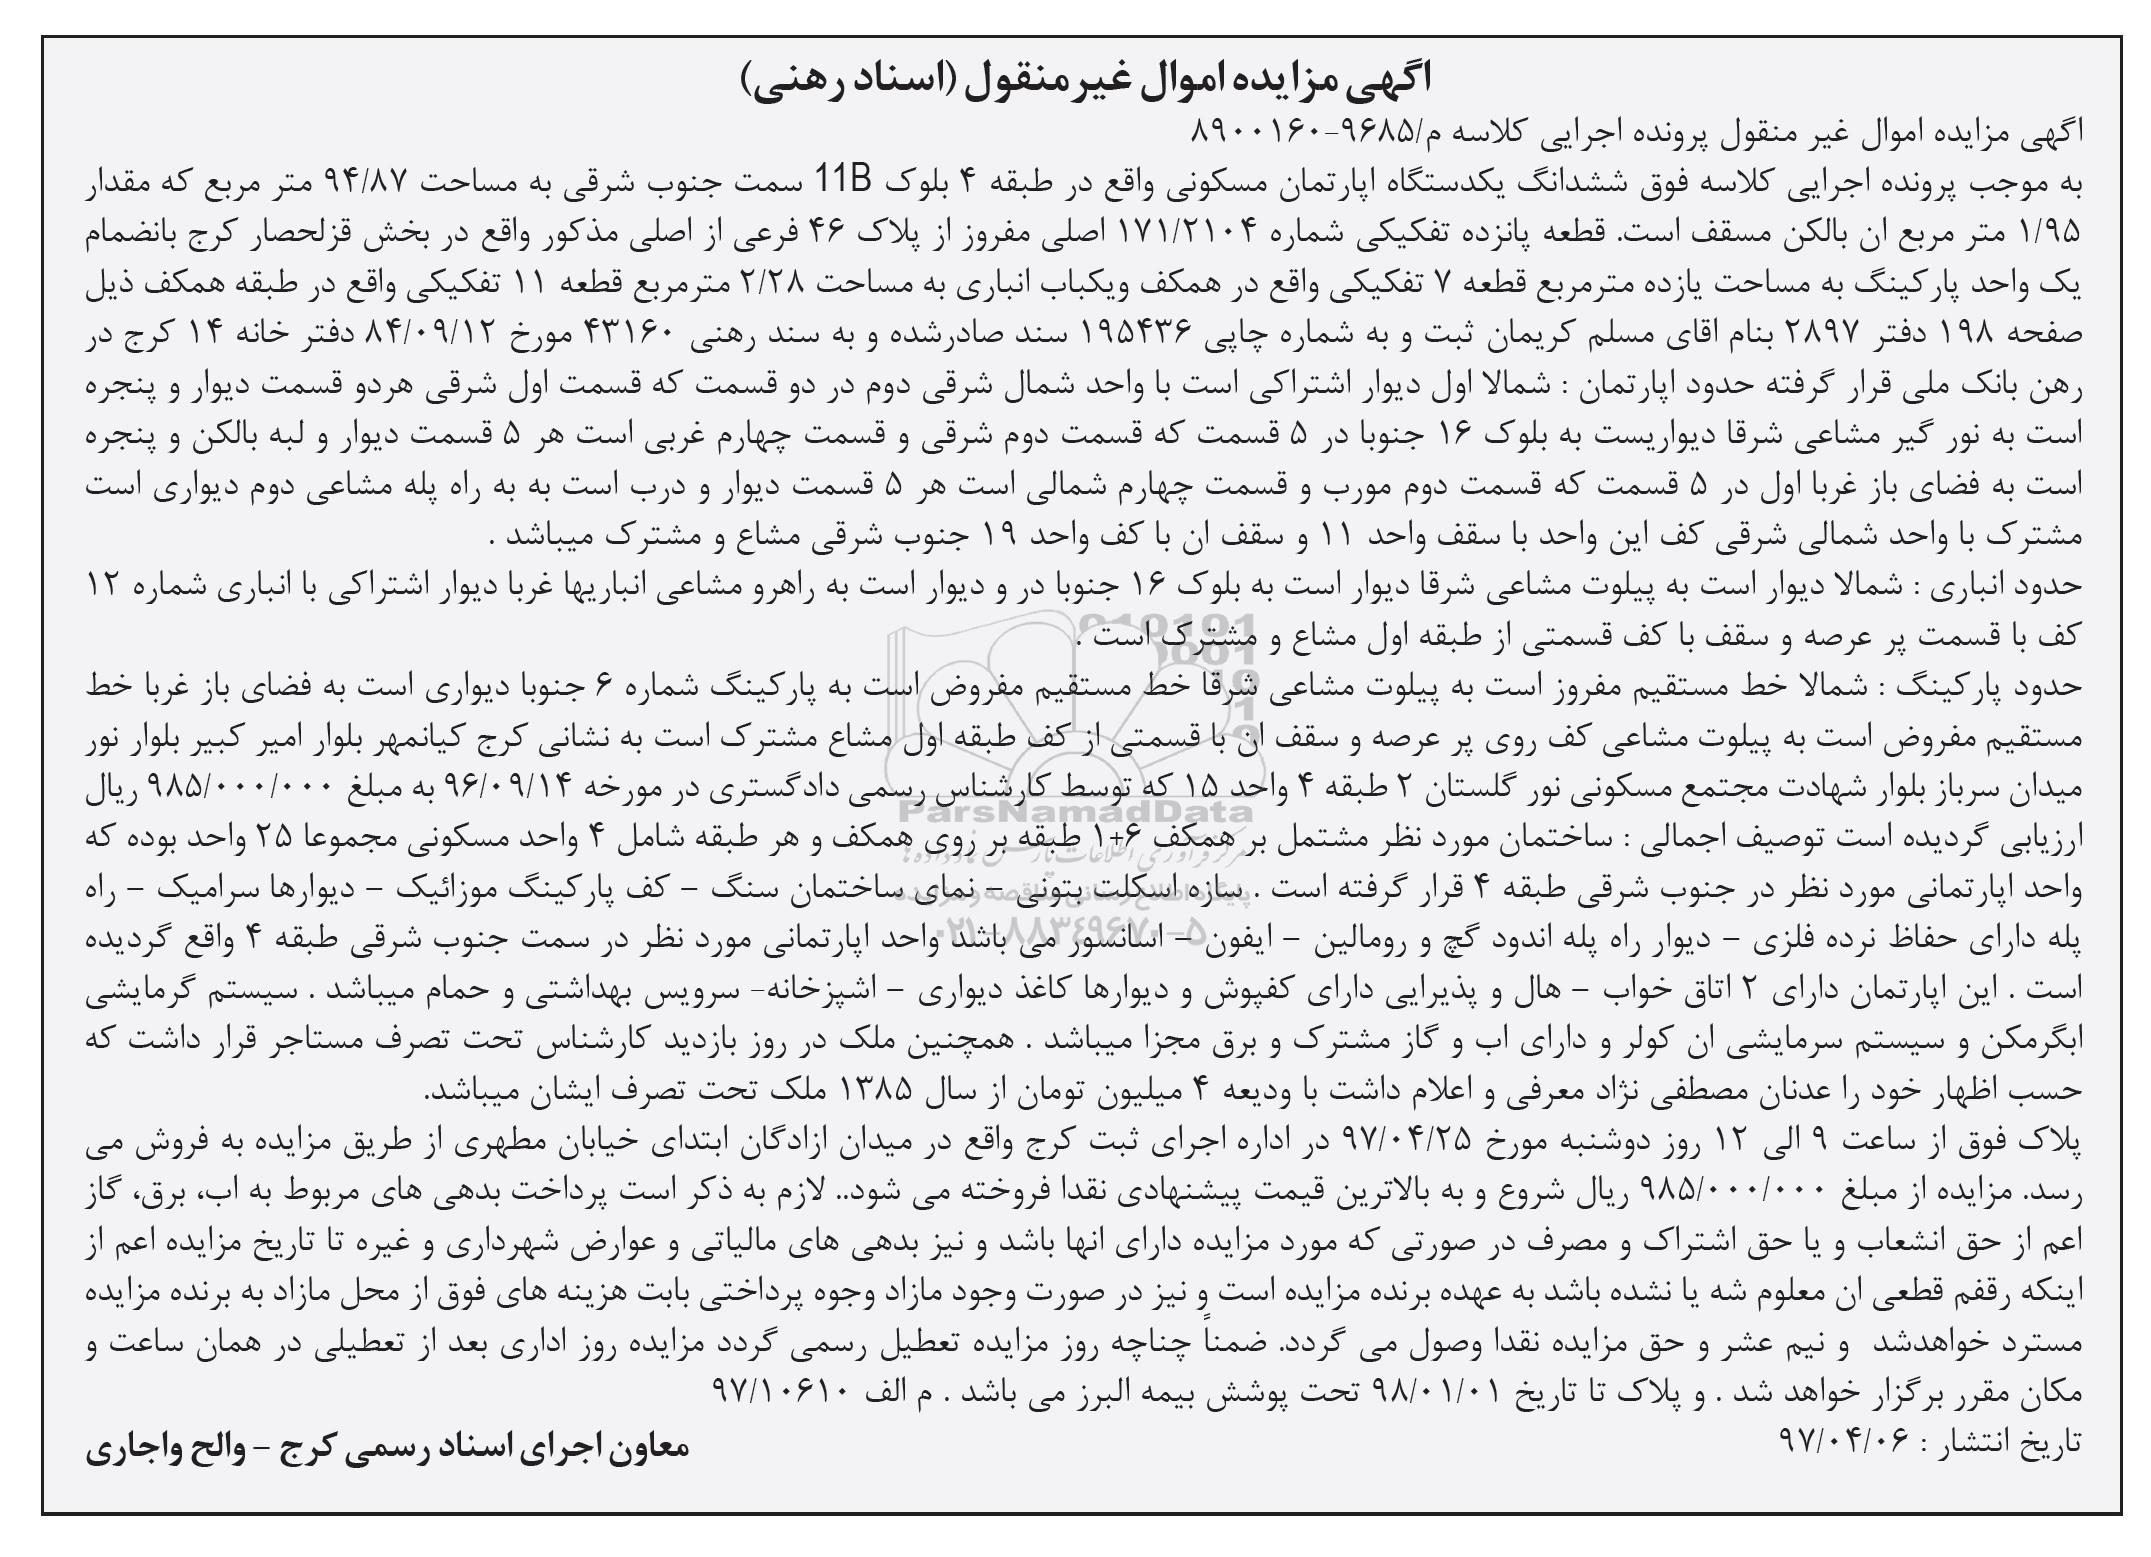 اگهی مزایده اموال غیرمنقول (اسناد رهنی)
اگهی مزایده اموال غیر منقول پرونده اجرایی کلاسه م/۹۶۸۵-۸۹۰۰۱۶۰
به موجب پرونده اجرایی کلاسه فوق ششدانگ یکدستگاه اپارتمان مسکونی واقع در طبقه ۴ بلوک 11B سمت جنوب شرقی به مساحت ۹۴/۸۷ متر مربع که مقدار
۱/۹۵ متر مربع ان بالکن مسقف است. قطعه پانزده تفکیکی شماره ۱۷۱/۲۱۰۴ اصلی مفروز از پلاک ۴۶ فرعی از اصلی مذکور واقع در بخش قزلحصار کرج بانضمام
یک واحد پارکینگ به مساحت یازده مترمربع قطعه ۷ تفکیکی واقع در همکف ویکباب انباری به مساحت ۲/۲۸ مترمربع قطعه ۱۱ تفکیکی واقع در طبقه همکف ذیل
صفحه ۱۹۸ دفتر ۲۸۹۷ بنام اقای مسلم کریمان ثبت و به شماره چاپی ۱۹۵۴۳۶ سند صادرشده و به سند رهنی ۴۳۱۶۰ مورخ ۸۴/۰۹/۱۲ دفتر خانه ۱۴ کرج در
رهن بانک ملی قرار گرفته حدود اپارتمان : شمالا اول دیوار اشتراکی است با واحد شمال شرقی دوم در دو قسمت که قسمت اول شرقی هردو قسمت دیوار و پنجره
است به نور گیر مشاعی شرقا دیواریست به بلوک ۱۶ جنوبا در ۵ قسمت که قسمت دوم شرقی و قسمت چهارم غربی است هر ۵ قسمت دیوار و لبه بالکن و پنجره
است به فضای باز غربا اول در ۵ قسمت که قسمت دوم مورب و قسمت چهارم شمالی است هر ۵ قسمت دیوار و درب است به به راه پله مشاعی دوم دیواری است
مشترک با واحد شمالی شرقی کف این واحد با سقف واحد ۱۱ و سقف ان با کف واحد ۱۹ جنوب شرقی مشاع و مشترک میباشد .
حدود انباری : شمالا دیوار است به پیلوت مشاعی شرقا دیوار است به بلوک ۱۶ جنوبا در و دیوار است به راهرو مشاعی انباریها غربا دیوار اشتراکی با انباری شماره ۱۲
کف با قسمت پر عرصه و سقف با کف قسمتی از طبقه اول مشاع و مشترک است .
حدود پارکینگ : شمالا خط مستقیم مفروز است به پیلوت مشاعی شرقا خط مستقیم مفروض است به پارکینگ شماره ۶ جنوبا دیواری است به فضای باز غربا خط
مستقیم مفروض است به پیلوت مشاعی کف روی پر عرصه و سقف ان با قسمتی از کف طبقه اول مشاع مشترک است به نشانی کرج کیانمهر بلوار امیر کبیر بلوار نور
میدان سرباز بلوار شهادت مجتمع مسکونی نور گلستان ۲ طبقه ۴ واحد ۱۵ که توسط کارشناس رسمی دادگستری در مورخه ۹۶/۰۹/۱۴ به مبلغ ۹۸۵/۰۰۰/۰۰۰ ریال
ParsNamadData
ارزیابی گردیده است توصیف اجمالی : ساختمان مورد نظر مشتمل بر همکف ۶+۱ طبقه بر روی همکف و هر طبقه شامل ۴ واحد مسکونی مجموعا ۲۵ واحد بوده که
مرکز فرآوری اطلاعات پارس نماد داده‌ها
واحد اپارتمانی مورد نظر در جنوب شرقی طبقه ۴ قرار گرفته است . سازه اسکلت بتونی - نمای ساختمان سنگ - کف پارکینگ موزائیک - دیوارها سرامیک - راه
پایگاه اطلاع رسانی مناقصه و مزایده
پله دارای حفاظ نرده فلزی - دیوار راه پله اندود گچ و رومالین - ایفون - اسانسور می باشد واحد اپارتمانی مورد نظر در سمت جنوب شرقی طبقه ۴ واقع گردیده
۰۲۱-۸۸۳۴۹۶۷۰-۵
است . این اپارتمان دارای ۲ اتاق خواب - هال و پذیرایی دارای کفپوش و دیوارها کاغذ دیواری - اشپزخانه- سرویس بهداشتی و حمام میباشد . سیستم گرمایشی
ابگرمکن و سیستم سرمایشی ان کولر و دارای اب و گاز مشترک و برق مجزا میباشد . همچنین ملک در روز بازدید کارشناس تحت تصرف مستاجر قرار داشت که
حسب اظهار خود را عدنان مصطفی نژاد معرفی و اعلام داشت با ودیعه ۴ میلیون تومان از سال ۱۳۸۵ ملک تحت تصرف ایشان میباشد.
پلاک فوق از ساعت ۹ الی ۱۲ روز دوشنبه مورخ ۹۷/۰۴/۲۵ در اداره اجرای ثبت کرج واقع در میدان ازادگان ابتدای خیابان مطهری از طریق مزایده به فروش می
رسد. مزایده از مبلغ ۹۸۵/۰۰۰/۰۰۰ ریال شروع و به بالاترین قیمت پیشنهادی نقدا فروخته می شود.. لازم به ذکر است پرداخت بدهی های مربوط به اب، برق، گاز
اعم از حق انشعاب و یا حق اشتراک و مصرف در صورتی که مورد مزایده دارای انها باشد و نیز بدهی های مالیاتی و عوارض شهرداری و غیره تا تاریخ مزایده اعم از
اینکه رقفم قطعی ان معلوم شه یا نشده باشد به عهده برنده مزایده است و نیز در صورت وجود مازاد وجوه پرداختی بابت هزینه های فوق از محل مازاد به برنده مزایده
مسترد خواهدشد و نیم عشر و حق مزایده نقدا وصول می گردد. ضمناً چناچه روز مزایده تعطیل رسمی گردد مزایده روز اداری بعد از تعطیلی در همان ساعت و
مکان مقرر برگزار خواهد شد . و پلاک تا تاریخ ۹۸/۰۱/۰۱ تحت پوشش بیمه البرز می باشد . م الف ۹۷/۱۰۶۱۰
تاریخ انتشار : ۹۷/۰۴/۰۶
معاون اجرای اسناد رسمی کرج - والح واجاری